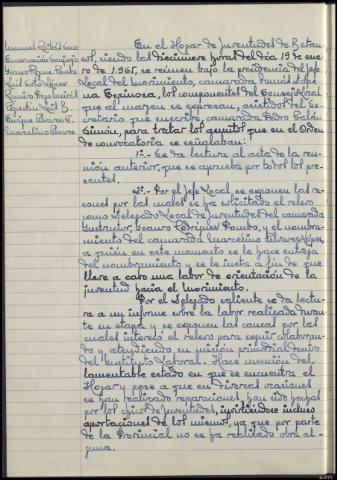 Manuel
Encarnación
Luis López
Agustín
Enrique Álvarez
Marcelino Álvarez
En el Hogar de Juventudes de Betan-
zos, siendo las diecinueve horas del día 19 de ene-
ro de 1.965, se reúnen bajo la presidencia del Jefe
Local del Movimiento, camarada
Espinosa, los componentes del Consejo Local
que al margen se expresan, asistidos del Se-
cretario que suscribe, camarada Pedro
Simón, para tratar los asuntos que en el Orden
de convocatoria se señalaban:
1º.- Se da lectura al acta de la reu-
nión anterior, que se aprueba por todos los pre-
sentes.
2º.- Por el Jefe Local, se exponen las ra-
zones por las cuales se ha solicitado el relevo
como Delegado Local de Juventudes del camarada
Instructor, Genaro Rodríguez Pombo, y el nombra-
miento del camarada Marcelino Álvarez López,
a quien en este momento se le hace entrega
del nombramiento y se le insta a fin de que
lleve a cabo una labor de orientación de la
juventud hacia el Movimiento.
Por el Delegado saliente se da lectu-
ra a un informe sobre la labor realizada duran-
te su etapa y se exponen las causas por las
cuales interesó el relevo para seguir colaboran-
do y atendiendo su misión primordial dentro
del Instituto Laboral. Hace mención del
lamentable estado en que se encuentra el
Hogar y pese a que en diversas ocasiones
se han realizado reparaciones, han sido hechas
por los chicos de Juventudes, invirtiéndose incluso
aportaciones de los mismos, ya que por parte
de la Provincial no se ha realizado obra al-
guna.